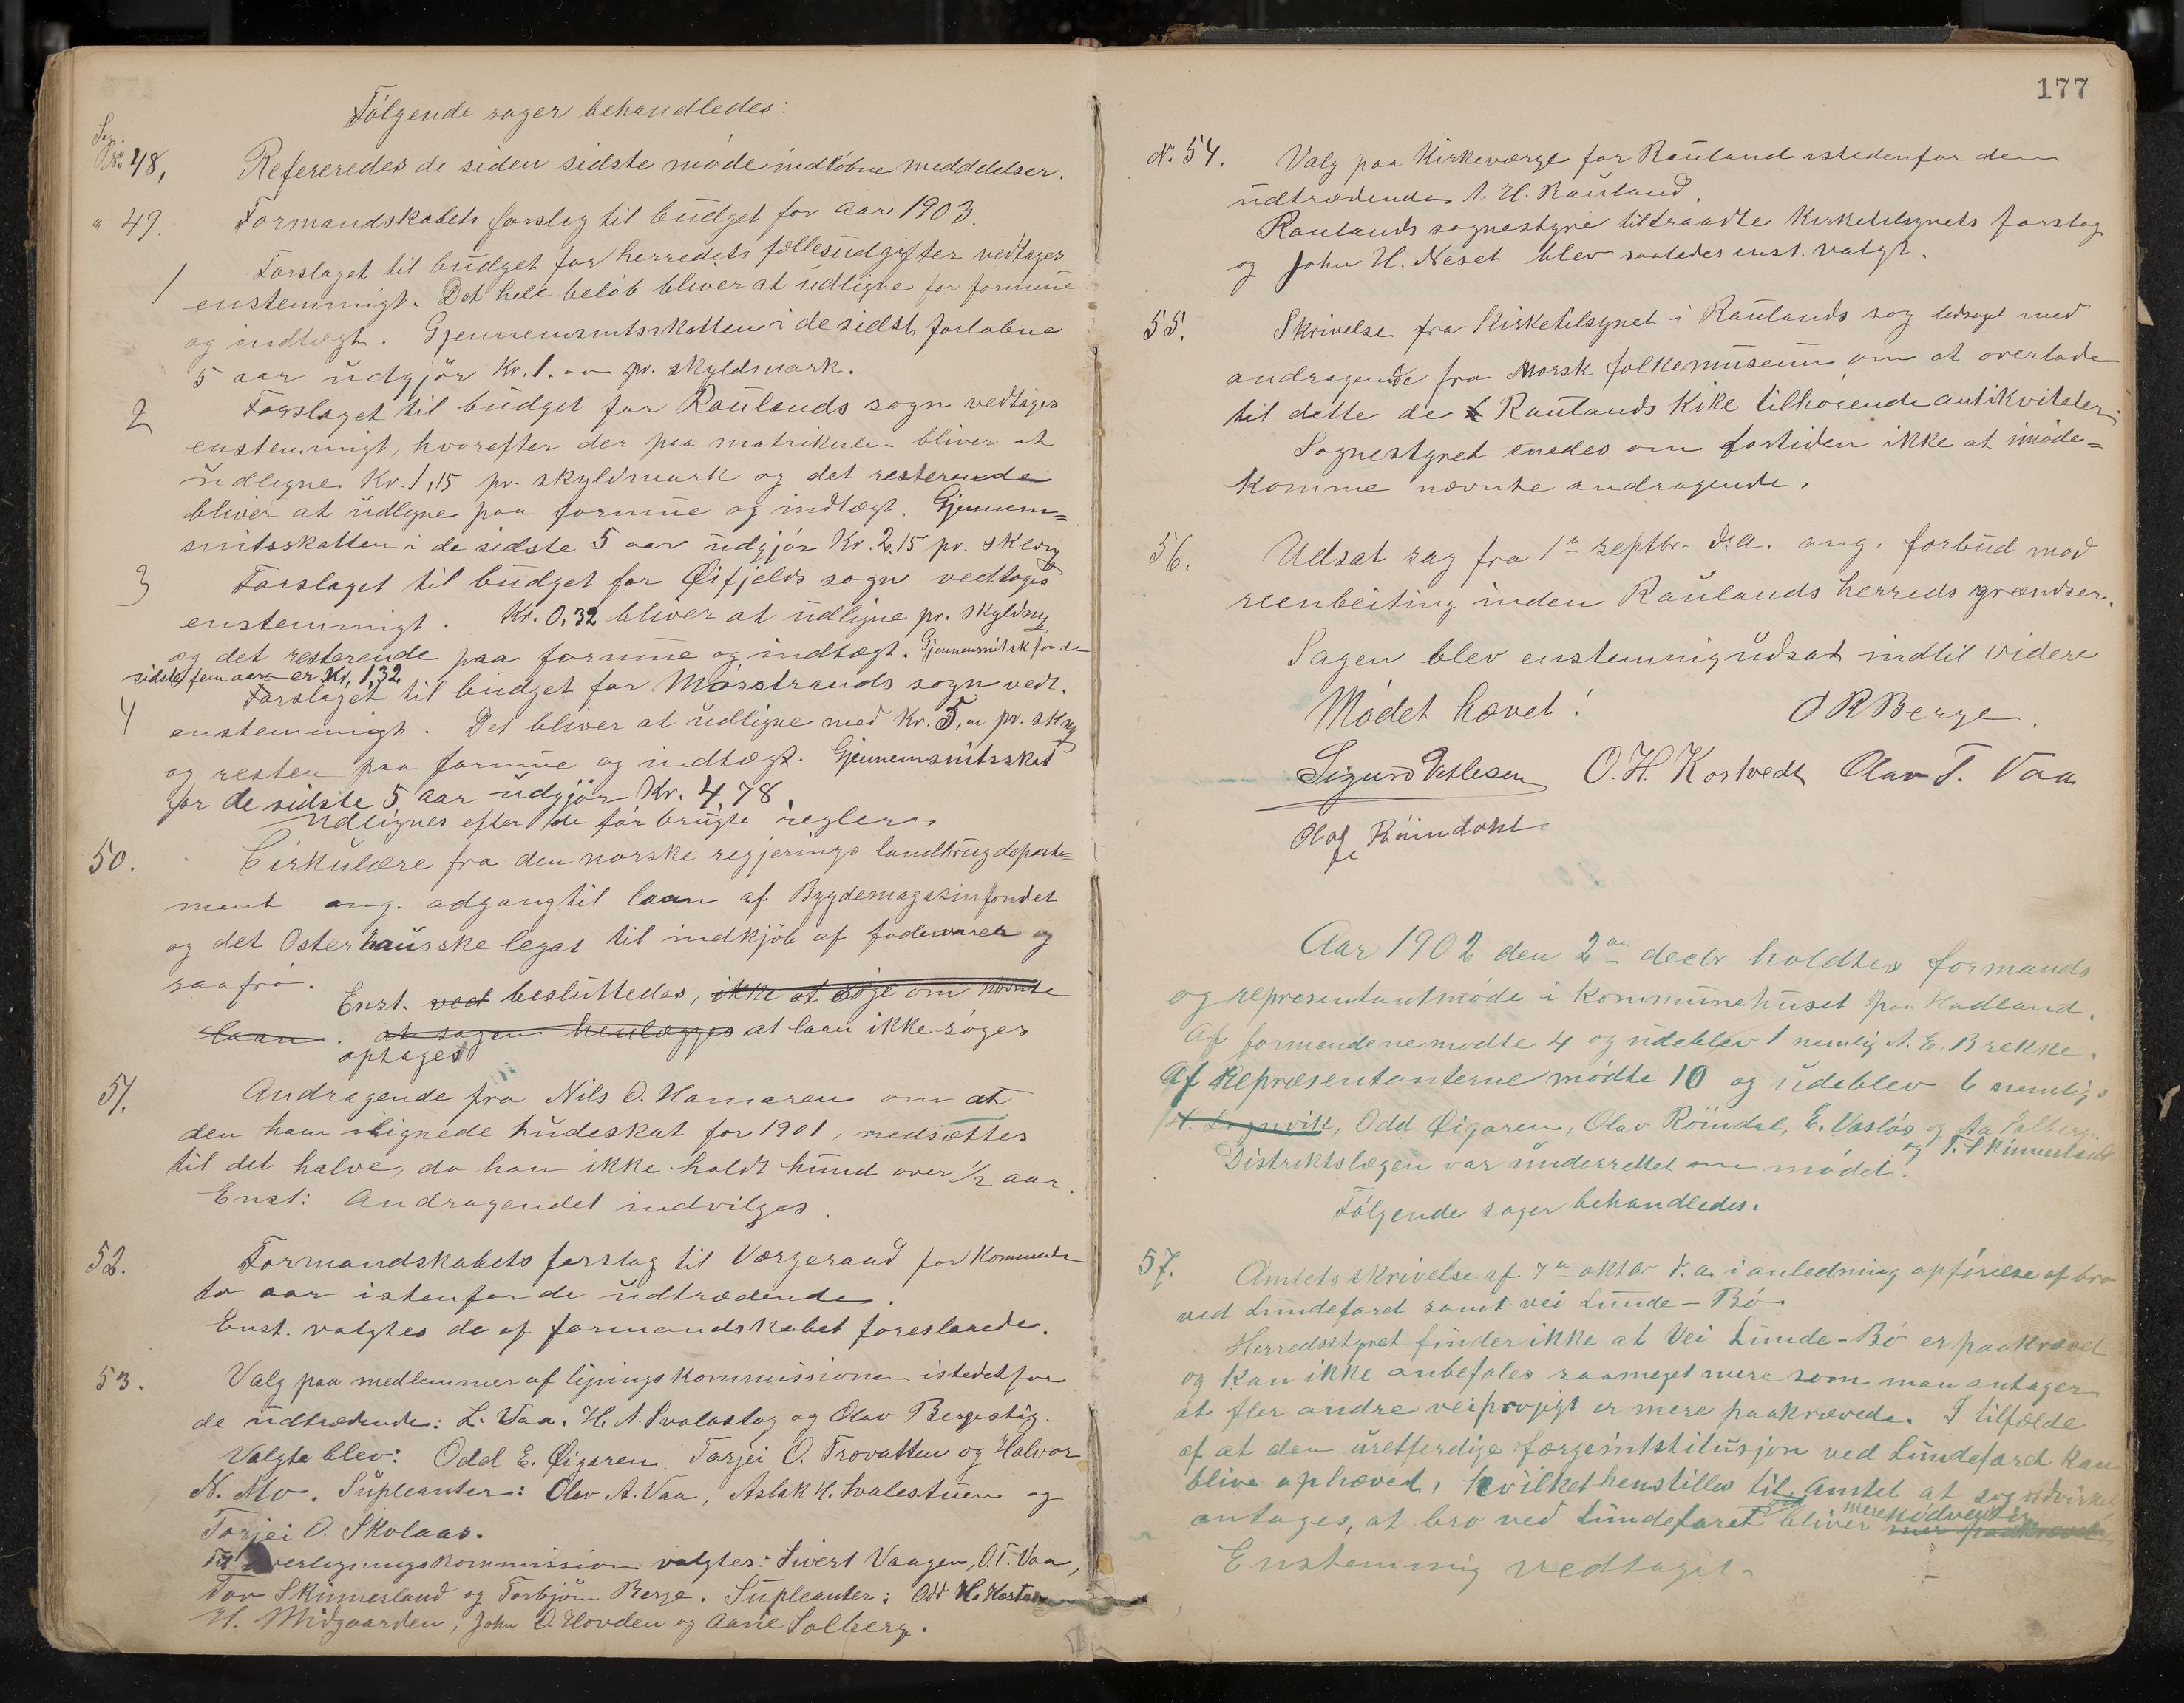 Følgende sager behandledes:
Sag
No. 48, Refereredes de siden sidste møde indløbne meddelelser.
" 49. Formandskabets forslag til budget for aar 1903.
1 Forslaget til budget for herredets fællesudgifter vedtages
enstemmigt. Det hele beløb bliver at udligne for formue
og indtægt. Gjennemsnitsskatten i de sidst forløbne
5 aar udgjør Kr. 1.00 pr. skyldmark.
2 Forslaget til budget for Raulands sogn vedtages
enstemmigt, hvorefter der paa matrikulen bliver at
udligne Kr. 1,15 pr. skyldmark og det resterende
bliver at udligne paa formue og indtægt. Gjennem=
snitsskatten i de sidste 5 aar udgjør Kr. 2.15 pr. skldm
3 Forslaget til budget for Øifjelds sogn vedtages
enstemmigt. Kr. 0,32 bliver at udligne pr. skyldm
og det resterende paa formue og indtægt. Gjennemsnitsk for de
sidste fem aar er Kr. 1,32
4 Forslaget til budget for Møsstrands sogn vedt.
enstemmigt. Det bliver at udligne med Kr. 5,00 pr. skm
og resten paa formue og indtægt. Gjennemsnitsskat
for de sidste 5 aar udgjør Kr. 4,78.
Udlignes efter de før brugte regler.
50. Cirkulære fra den norske regjerings landbrugdeparte=
ment ang. adgang til laan af Bygdemagasinfondet
og det Osterhausske legat til indkjøb af fodervarer og
saafrø.
Enst. ved besluttedes, ikke at søge om nævnte
laan. at sagen henlægges at laan ikke søges
optaget
51. Andragende fra Nils O. Hamaren om at
den ham ilignede hundeskat for 1901, nedsættes
til det halve, da han ikke holdt hund over 1/2 aar.
Enst: Andragendet indvilges.
52. Formandskabets forslag til Værgeraad for kommende
to aar istenfor de udtrædende.
Enst. valgtes de af formandskabet foreslaaede.
53. Valg paa medlemmer af ligningskommissionen istedetfor
de udtrædende: L. Vaa. H. A. Svalastog og Olav Bergestig.
Valgte blev: Odd E. Øigaren. Tarjei O. Trovatten og Halvor
N. Mo. Supleanter: Olav A. Vaa, Aslak H. Svalestuen og
Torjei O. Skolaas.
Til overligningskommission valgtes: Sivert Vaagen, O.T. Vaa,
Tov Skinnerland og Torbjørn Berge. Supleanter: Odd H. Kostv
H. Midgaarden, John O. Hovden og Aane Solberg.
177
No. 54. Valg paa Kirkeværge for Rauland istedenfor den
udtrædende A. H. Rauland.
Raulands sognestyre tiltraadte Kirketilsynets forslag
og John H. Neset blev saaledes enst. valgt.
55. Skrivelse fra Kirketilsynet i Raulands sog ledsaget med
andragende fra Norsk folkemuseum om at overlade
til dette de Raulands Kike tilhørende antikviteter.
Sognestyret enedes om fortiden ikke at imøde=
komme nævnte andragende.
56. Udsat sag fra 1ste septbr. d.a. ang. forbud mod
reenbeiting inden Raulands herreds grændser.
Sagen blev enstemmig udsat indtil videre
Mødet hævet! O R Berge.
Sigurd Vetlesen O. H. Kostvedt Olav T. Vaa
Olaf Røindahl
Aar 1902 den 2den decbr holdtes formands
og repræsentantmøde i kommunehuset paa Hadland.
Af formændene mødte 4 og udeblev 1 nemlig A. E. Brekke.
Af Repræsentanterne mødte 10 og udeblev 6 nemlig:
H. Lognvik, Odd Øigaren, Olav Røindal, E. Vasløs og Aa Solberg
og T. Skinnerland
Distriktslægen var underrettet om mødet.
Følgende sager behandledes.
57. Amtets skrivelse af 7de oktbr d.a. i anledning opførelse af bro
ved Lundefaret samt vei Lunde-Bø.
Herredsstyret finder ikke at Vei Lunde-Bø er paakrævet
og kan ikke anbefales saameget mere som man antager
at fler andre veiprojegt er mere paakrævede. I tilfælde
af at den uretferdige færgeinstitusjon ved Lundefaret kan
blive ophævet, hvilket henstilles til Amtet at søg udvirket
antages, at bro ved Lundefaret bliver mer paakrævet mere nødvendig
Enstemmig vedtaget.